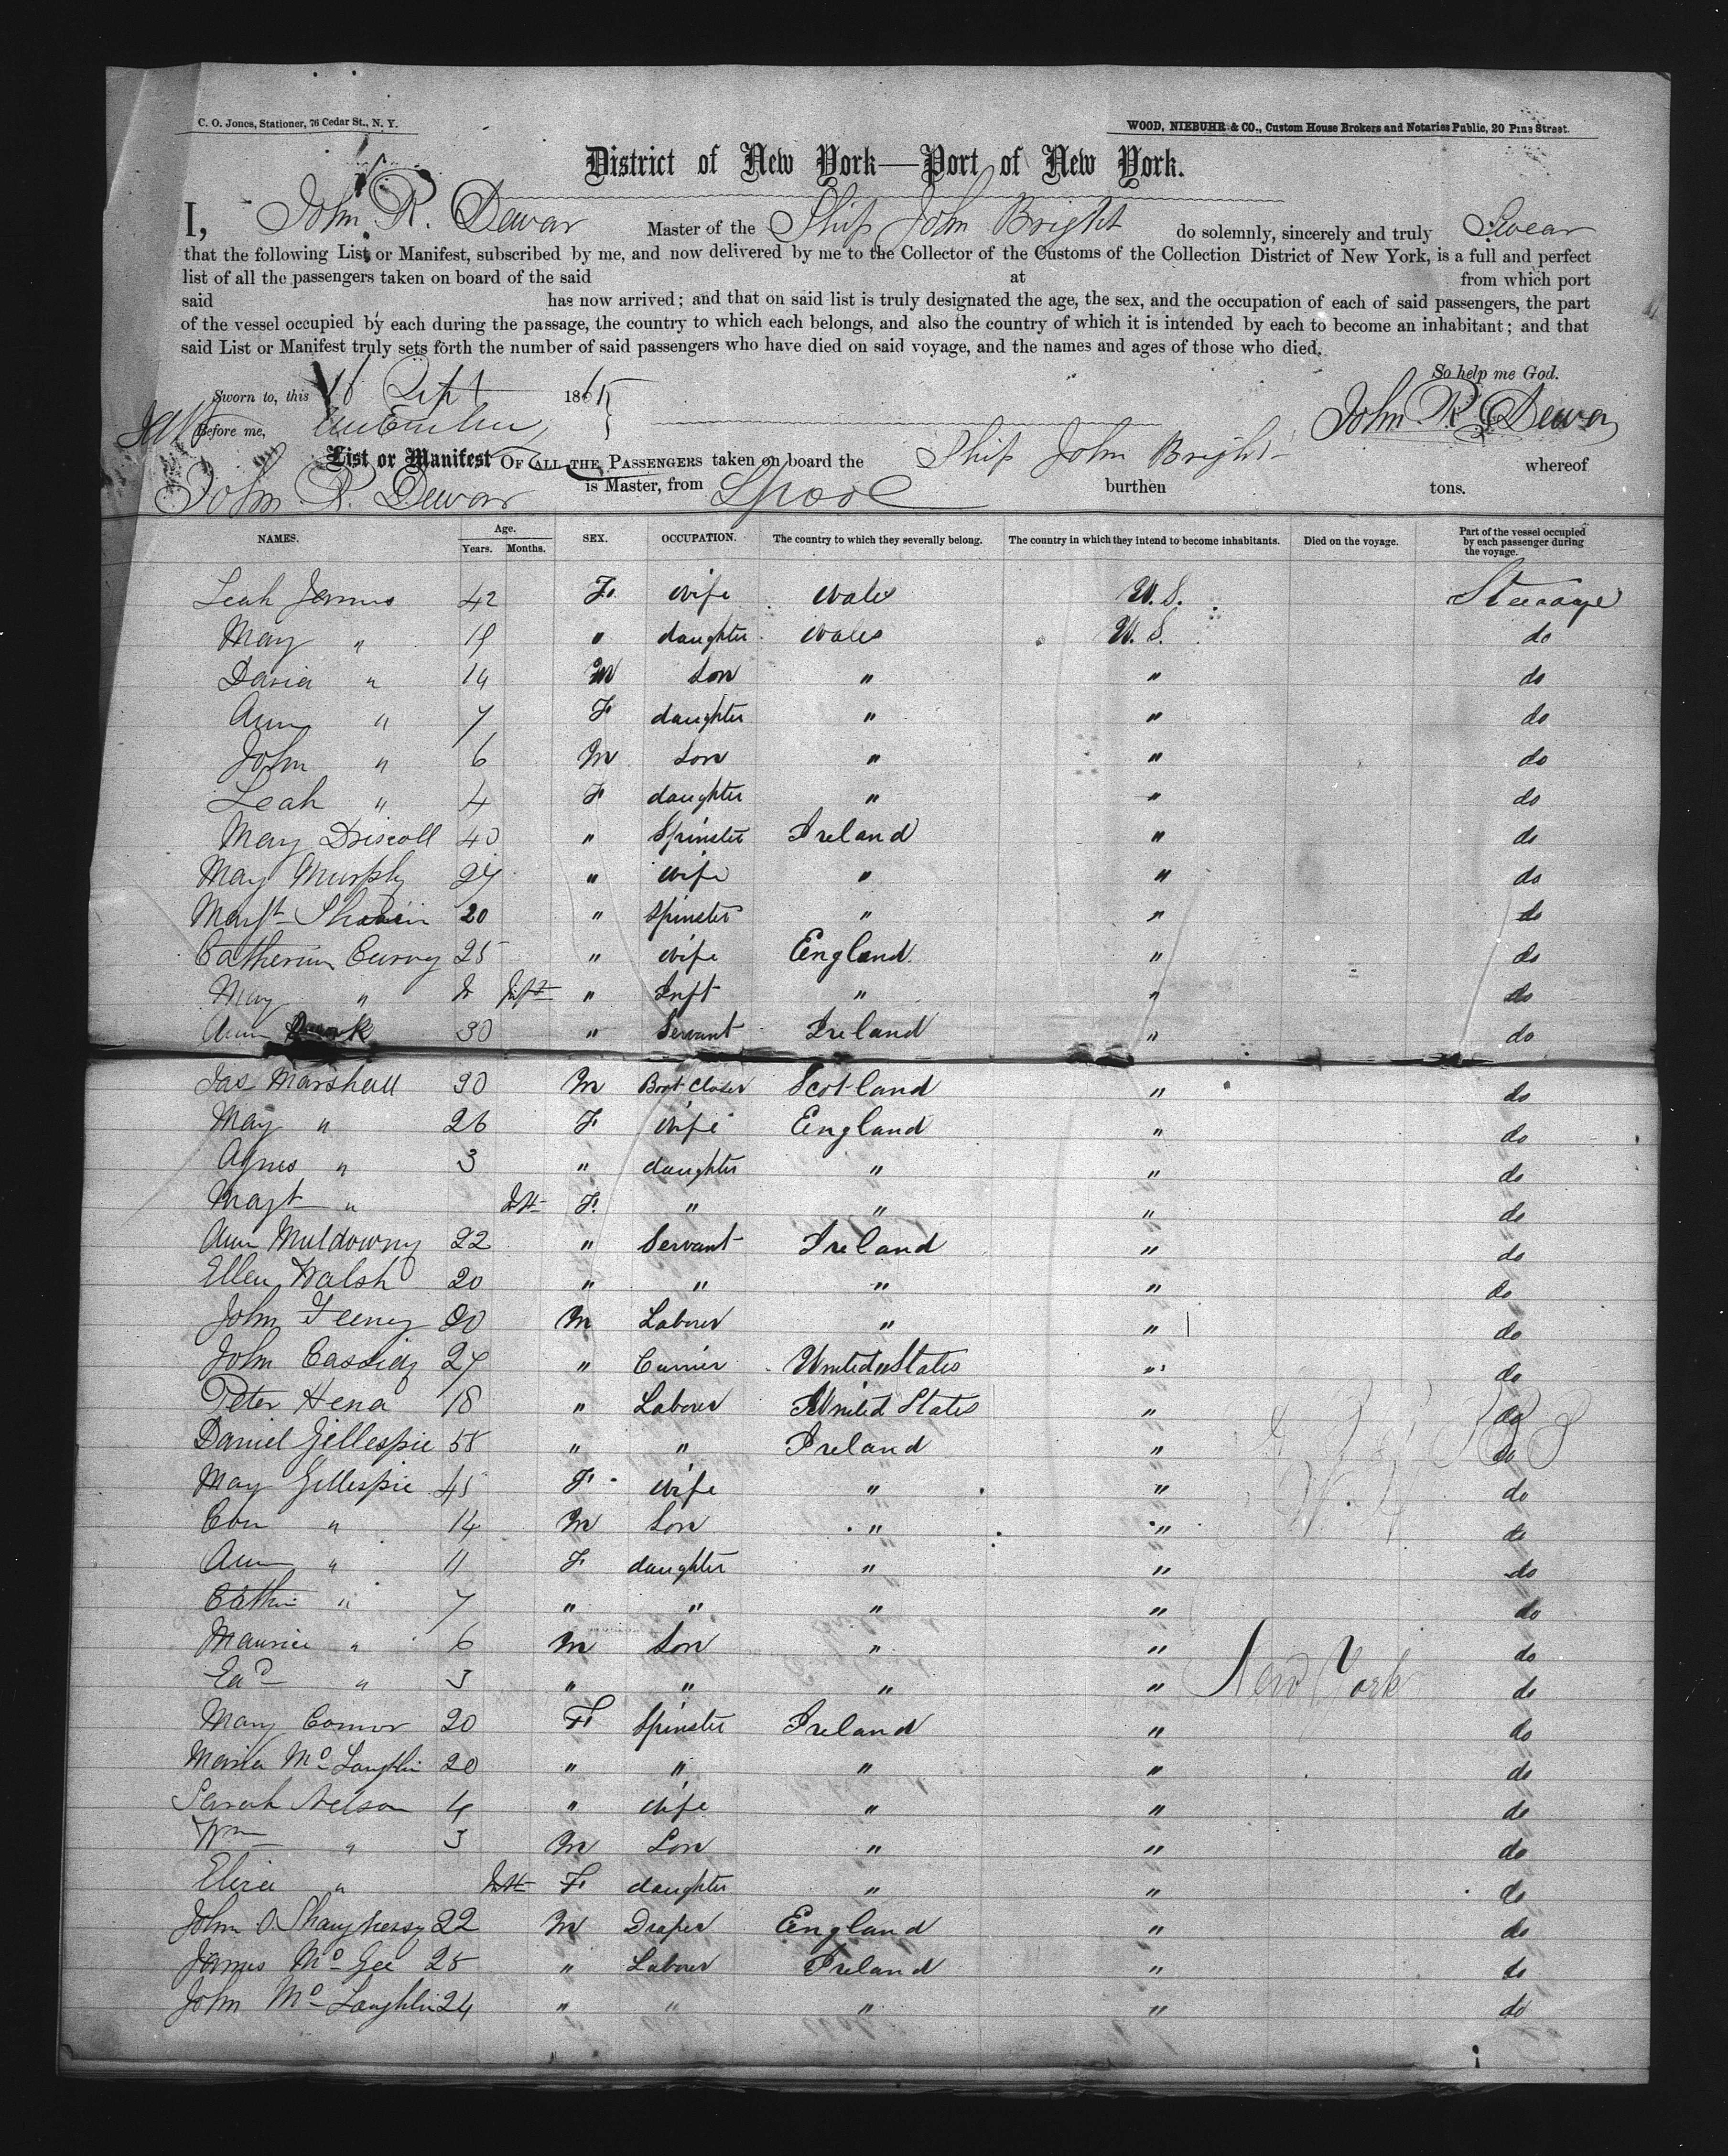 C. O. Jones, Stationer, 76 Cedar St., N. Y.
WOOD, NIEBUHR & CO., Custom House Brokers and Notaries Public, 20 Pine Street.
District of New York—Port of New York.
I, John R. Dewar Master of the Ship John Bright do solemnly, sincerely and truly Swear
that the following List or Manifest, subscribed by me, and now delivered by me to the Collector of the Customs of the Collection District of New York, is a full and perfect
list of all the passengers taken on board of the said at from which port
said has now arrived; and that on said list is truly designated the age, the sex, and the occupation of each of said passengers, the part
of the vessel occupied by each during the passage, the country to which each belongs, and also the country of which it is intended by each to become an inhabitant; and that
said List or Manifest truly sets forth the number of said passengers who have died on said voyage, and the names and ages of those who died.
So help me God.
Sworn to, this 18 Sept 1865
John R Dewar
Before me,
List or Manifest OF ALL THE PASSENGERS taken on board the Ship John Bright whereof
John R. Dewar is Master, from Lpool burthen tons.
NAMES. Age. Years. Months. SEX. OCCUPATION. The country to which they severally belong. The country in which they intend to become inhabitants. Died on the voyage. Part of the vessel occupied by each passenger during the voyage.
Leah James 42 F. wife Wales U.S. Steerage
May " 19 " daughter Wales U.S. do
David " 14 M Son " " do
Ann " 7 F daughter " " do
John " 6 M Son " " do
Leah " 4 F daughter " " do
Mary Driscoll 40 " Spinster Ireland " do
Mary Murphy 27 " wife " " do
Margt 20 " Spinster " " do
Catherine Curvy 25 " wife England " do
May " " Inft " " do
Ann 30 " Servant Ireland " do
Jas Marshall 30 M Boot Closer Scotland " do
May " 26 F wife England " do
Agnes " 3 " daughter " " do
Magt " Inft F. " " " do
Ann Muldowny 22 " Servant Ireland " do
Ellen Walsh 20 " " " " do
John Feeney 20 M Laborer " " do
John Cassidy 27 " Currier United States " do
Peter Hena 18 " Laborer United States " do
Daniel Gillespie 55 " " Ireland " do
May Gillespie 45 F wife " " do
Con " 14 M Son " " do
Ann " 11 F daughter " " do
Cathe " 7 " " " " do
Maurice " 6 M Son " " do
Ed " 3 " " " " do
New York
Mary Connor 20 F Spinster Ireland " do
Maria McLaughlin 20 " " " " do
Sarah Nelson " wife " " do
Wm " 3 M Son " " do
Eliza " Inft F daughter " " do
John O.Shaughnessy 22 M Draper England " do
James McGee 25 " Laborer Ireland " do
John McLaughlin 24 " " " " do